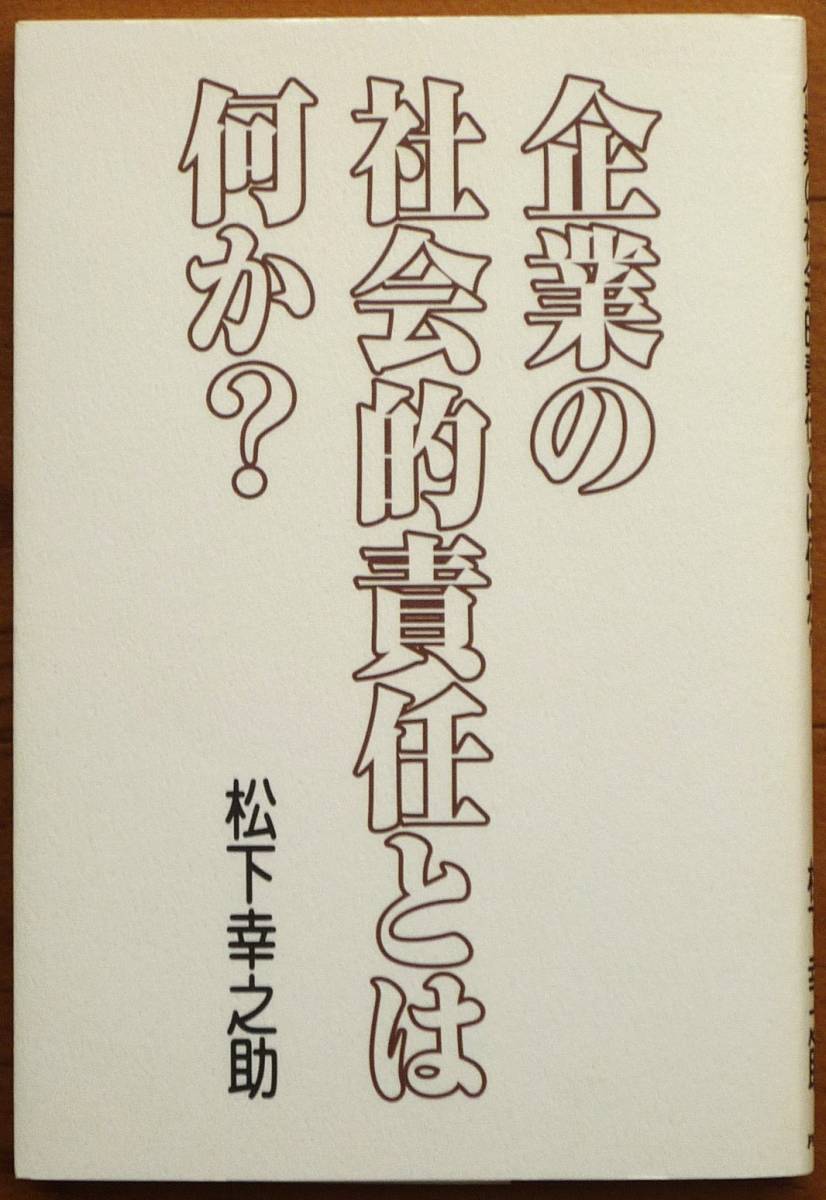 企業の
社会的責任とは
何か?
松下幸之助